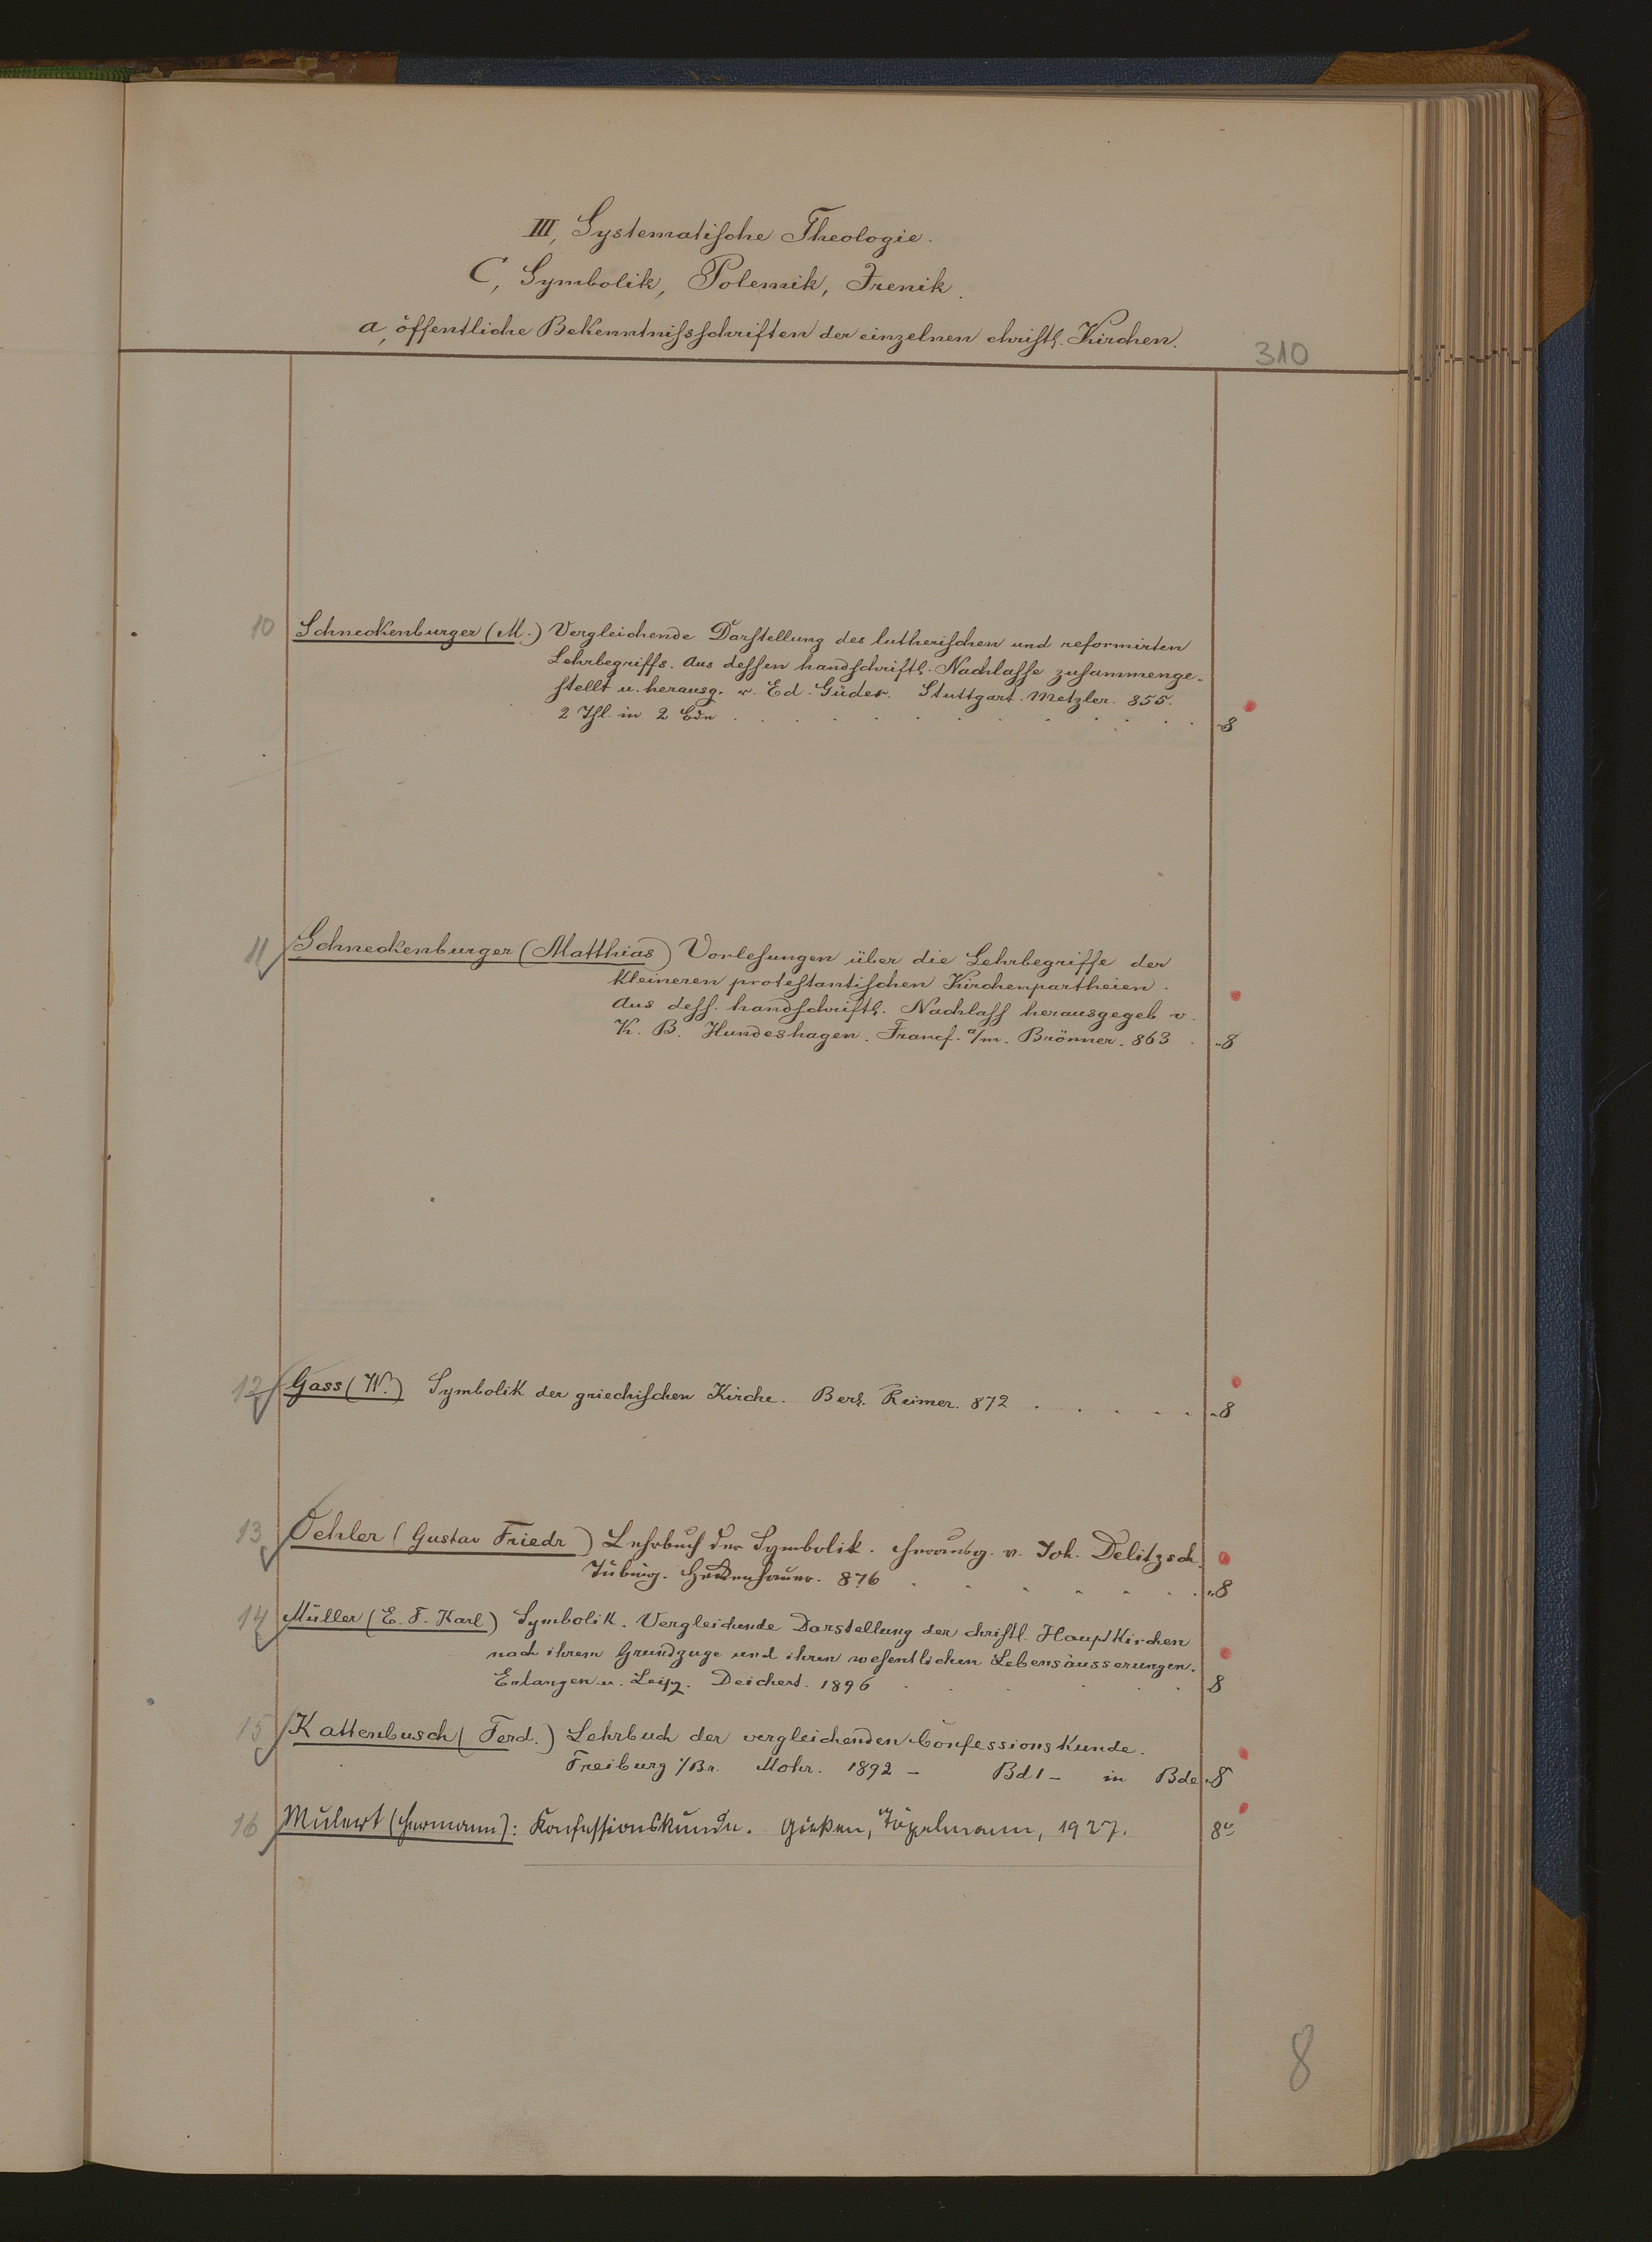 III, Systematische Theologie.
C, Symbolik, Polemik, Irenik.
a, öffentliche Bekenntnissschriften der einzelnen christl. Kirchen.
310
10 Schneckenburger (M.) Vergleichende Darstellung des lutherischen und reformirten
Lehrbegriffs. Aus dessen handschriftl. Nachlasse zusammenge-
stellt u. herausg. v. Ed. Güder. Stuttgart. Metzler. 855.
2 Thl. in 2 Bdn . . . . . . . . . . . . „8
11 Schneckenburger (Matthias) Vorlesungen über die Lehrbegriffe der
kleineren protestantischen Kirchenpartheien.
Aus dess. handschriftl. Nachlass herausgegeb v.
K. B. Hundeshagen. Francf. a/m. Brönner. 863 . „8
12 Gass (W.) Symbolik der griechischen Kirche. Berl. Reimer. 872 . . . . . „8
13 Oehler (Gustav Friedr) Lehrbuch der Symbolik. Herausg. v. Joh. Delitzsch.
Tübing. Heckenhauer. 876 . . . . . . . „8
14 Müller (E. F. Karl) Symbolik. Vergleichende Darstellung der christl. Hauptkirchen
nach ihrem Grundzuge und ihren wesentlichen Lebensäusserungen.
Erlangen u. Leipz. Deichert. 1896 . . . . . 8
15 Kattenbusch (Ferd.) Lehrbuch der vergleichenden Confessionskunde.
Freiburg i/Br. Mohr. 1892 – Bd 1 – in Bde „8
16 Mulert (Hermann): Konfessionskunde. Gießen, Töpelmann, 1927. 8°
8